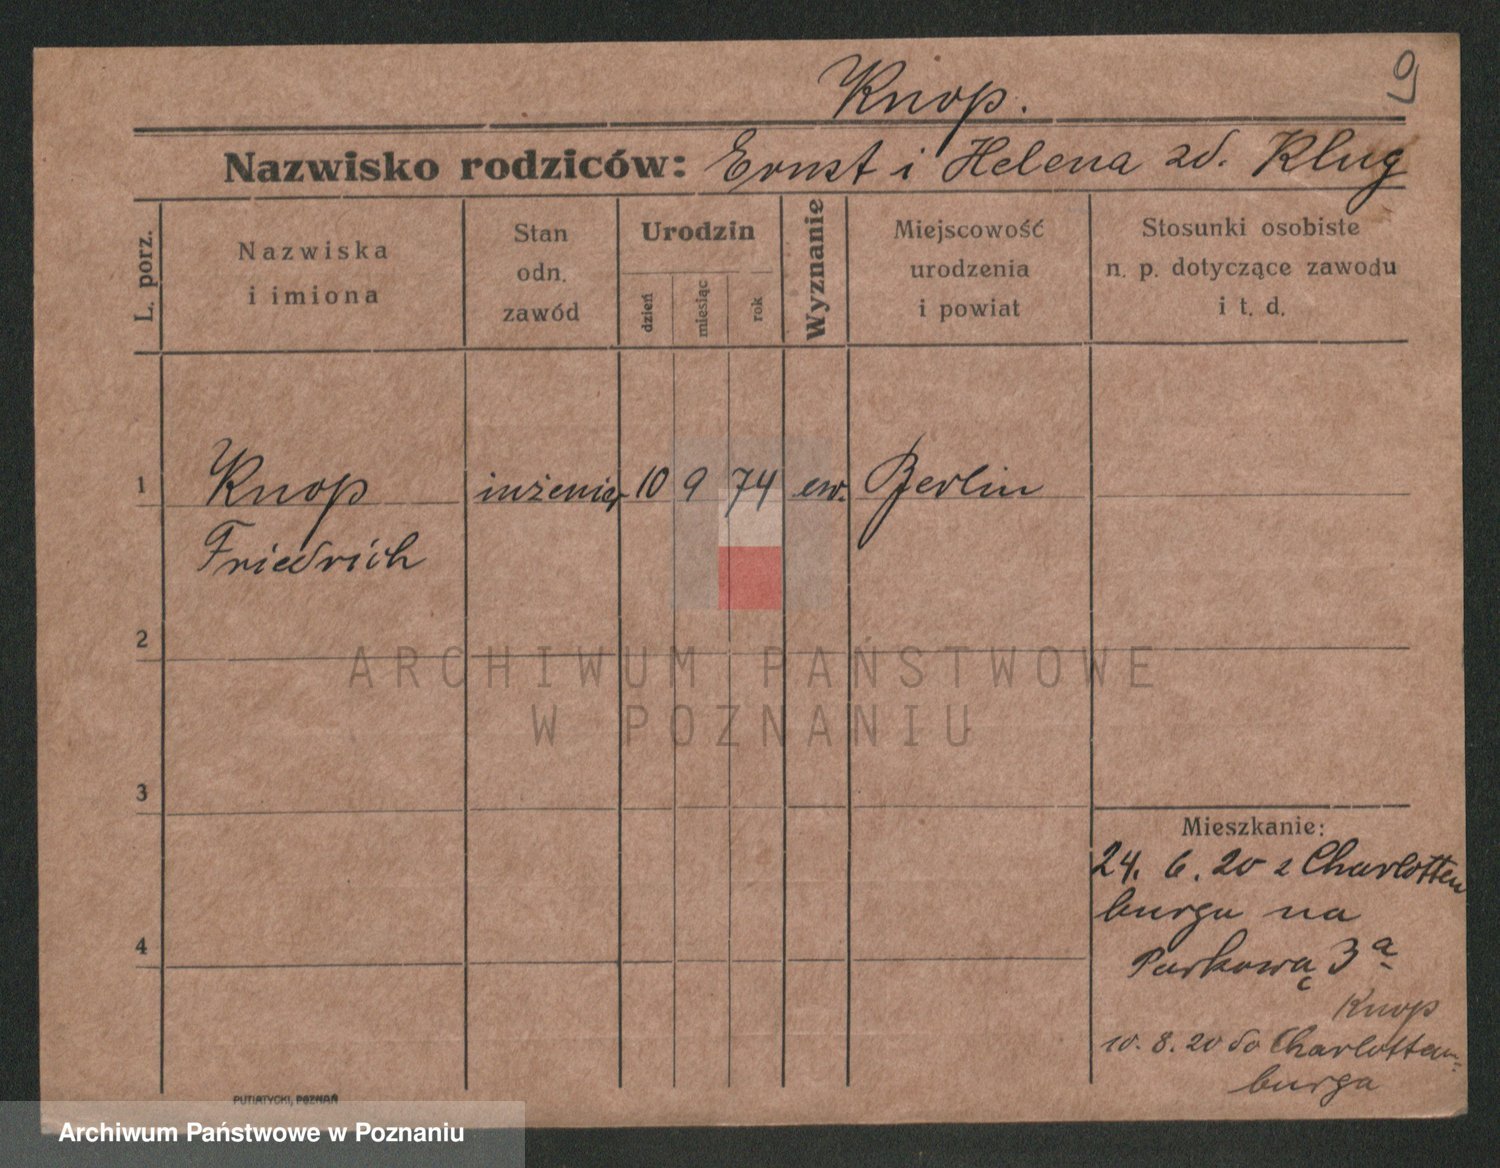 9
Knop.
Nazwisko rodziców: Ernst i Helena zd. Klug
L. porz.
Nazwiska
i imiona
Stan
odn.
zawód
Urodzin
dzień
miesiąc
rok
Wyznanie
Miejscowość
urodzenia
i powiat
Stosunki osobiste
n. p. dotyczące zawodu
i t. d.
1 Knop inżenier 10 9 74 ew. Berlin
Friedrich
2
ARCHIWUM PAŃSTWOWE
W POZNANIU
3
Mieszkanie:
24. 6. 20 z Charlotten
burga na
4
Parkową 3a
Knop
10. 8. 20 do Charlotten-
burga
PUTIATYCKI, POZNAŃ
Archiwum Państwowe w Poznaniu